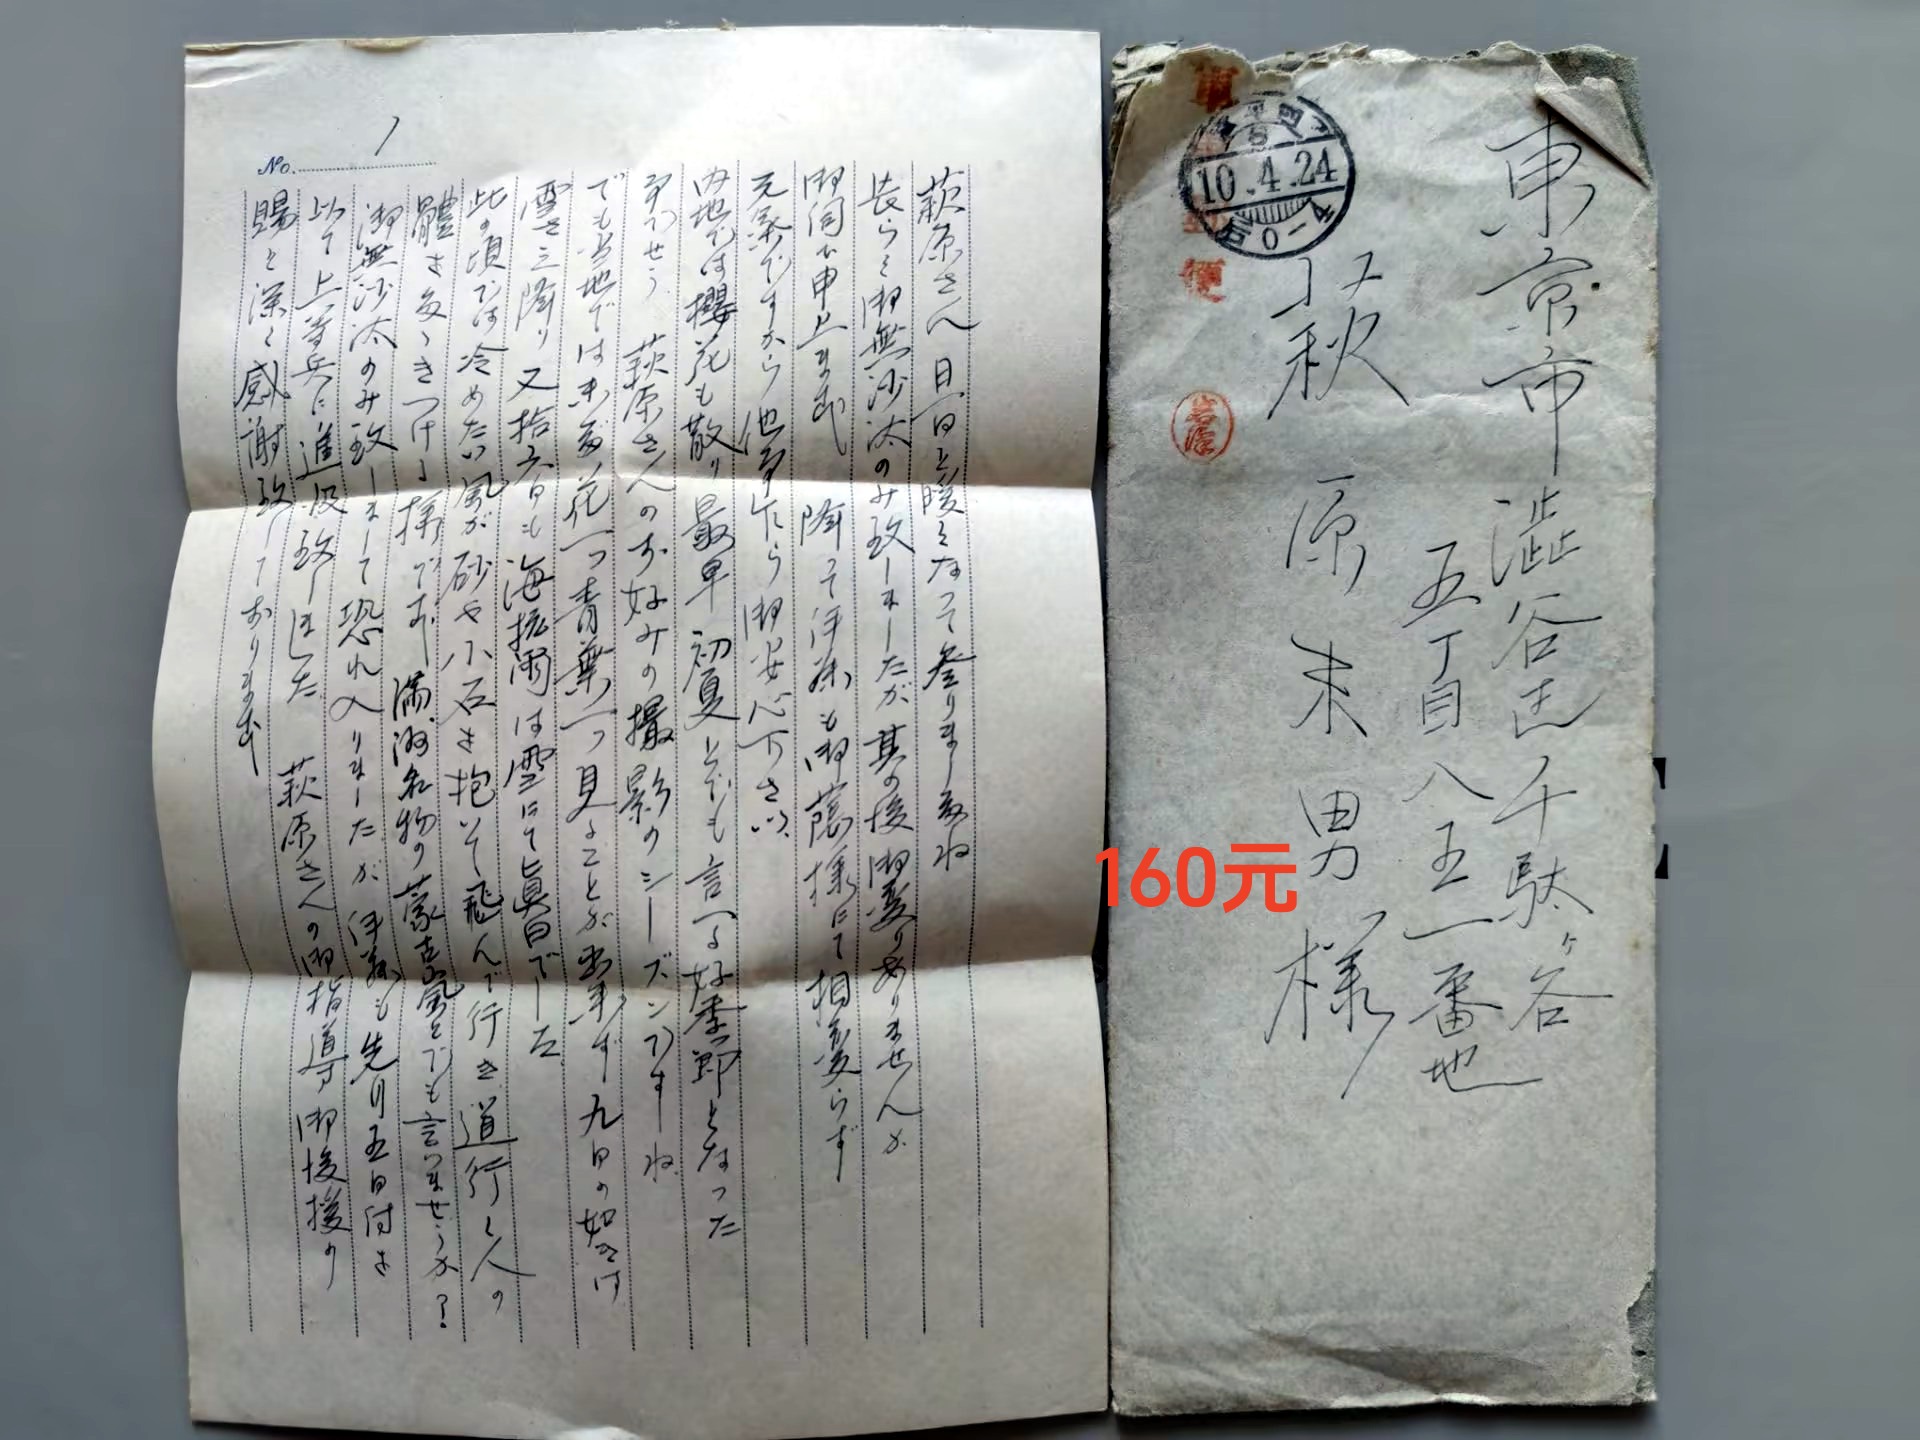 No. 1
萩原さん 日一日と暖くなって参りましたね
長らく御無沙汰のみ致しましたが其の後御変りありませんか
御伺ひ申上ます 降って洋孫も御蔭様にて相変らず
元気ですから他事たら御安心下さい
内地では櫻花も散り最早初夏とでも言へる好季節となった
事でせう 萩原さんのお好みの撮影のシーズンですね
でも当地では未だ花一つ青葉一つ見ることが出来ず九日の如きは
雪さへ降り又拾六日も海拉爾は雪にて眞白でした
此の頃では冷めたい風が砂や小石を抱いて飛んで行き道行く人の
體をたゝきつける様です 満洲名物の蒙古風とでも言ひませうか?
御無沙汰のみ致しまして恐れ入りましたが も先月五日付を
以て上等兵に進級致しました 萩原さんの御指導御後援の
賜と深く感謝致しております
東京市澁谷区千駄ヶ谷
五丁目八五一番地
萩原末男様
軍事郵便
10.4.24
160元